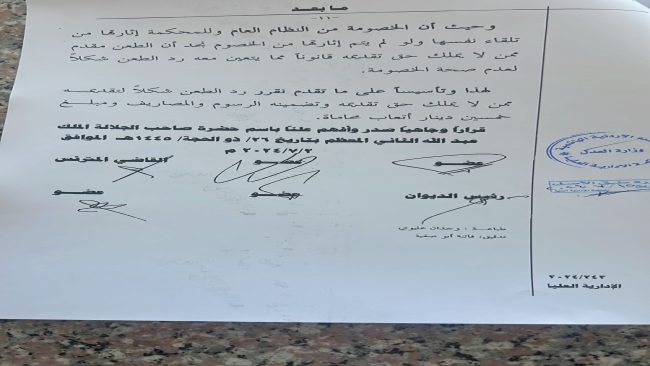 ما بعد
-١١-
وحيث أن الخصومة من النظام العام وللمحكمة إثارتها من
تلقاء نفسها ولو لم يتم إثارتها من الخصوم بعد أن الطعن مقدم
ممن لا يملك حق تقديمه قانوناً مما يتعين معه رد الطعن شكلاً
لعدم صحة الخصومة.
لهذا وتأسيساً على ما تقدم نقرر رد الطعن شكلاً لتقديمه
ممن لا يملك حق تقديمه وتضمينه الرسوم والمصاريف ومبلغ
خمسين دينار أتعاب محاماة.
قراراً وجاهياً صدر وأفهم علناً باسم حضرة صاحب الجلالة الملك
عبد الله الثاني المعظم بتاريخ ٢٦/ ذو الحجة/ ١٤٤٥هـ الموافق
٢٠٢٤/٧/٢ م
عضو عضو القاضي المترئس
رئيس الديوان عضو عضو
طباعة : وجدان عليوي
تدقيق: فاتنة أبو صفية
وزارة العدل
٢٠٢٤/٢٤٣
الإدارية العليا